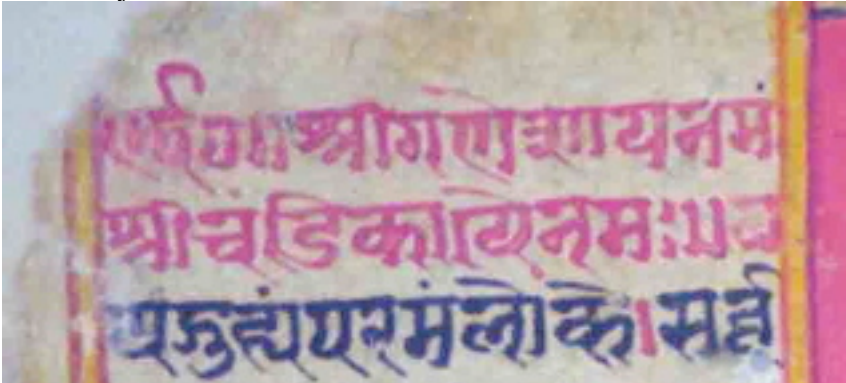 ॥श्रीगणेशायनमं
श्रीचंडिकायैनमः॥
यद्गुह्यंपरमंलोके।सर्व